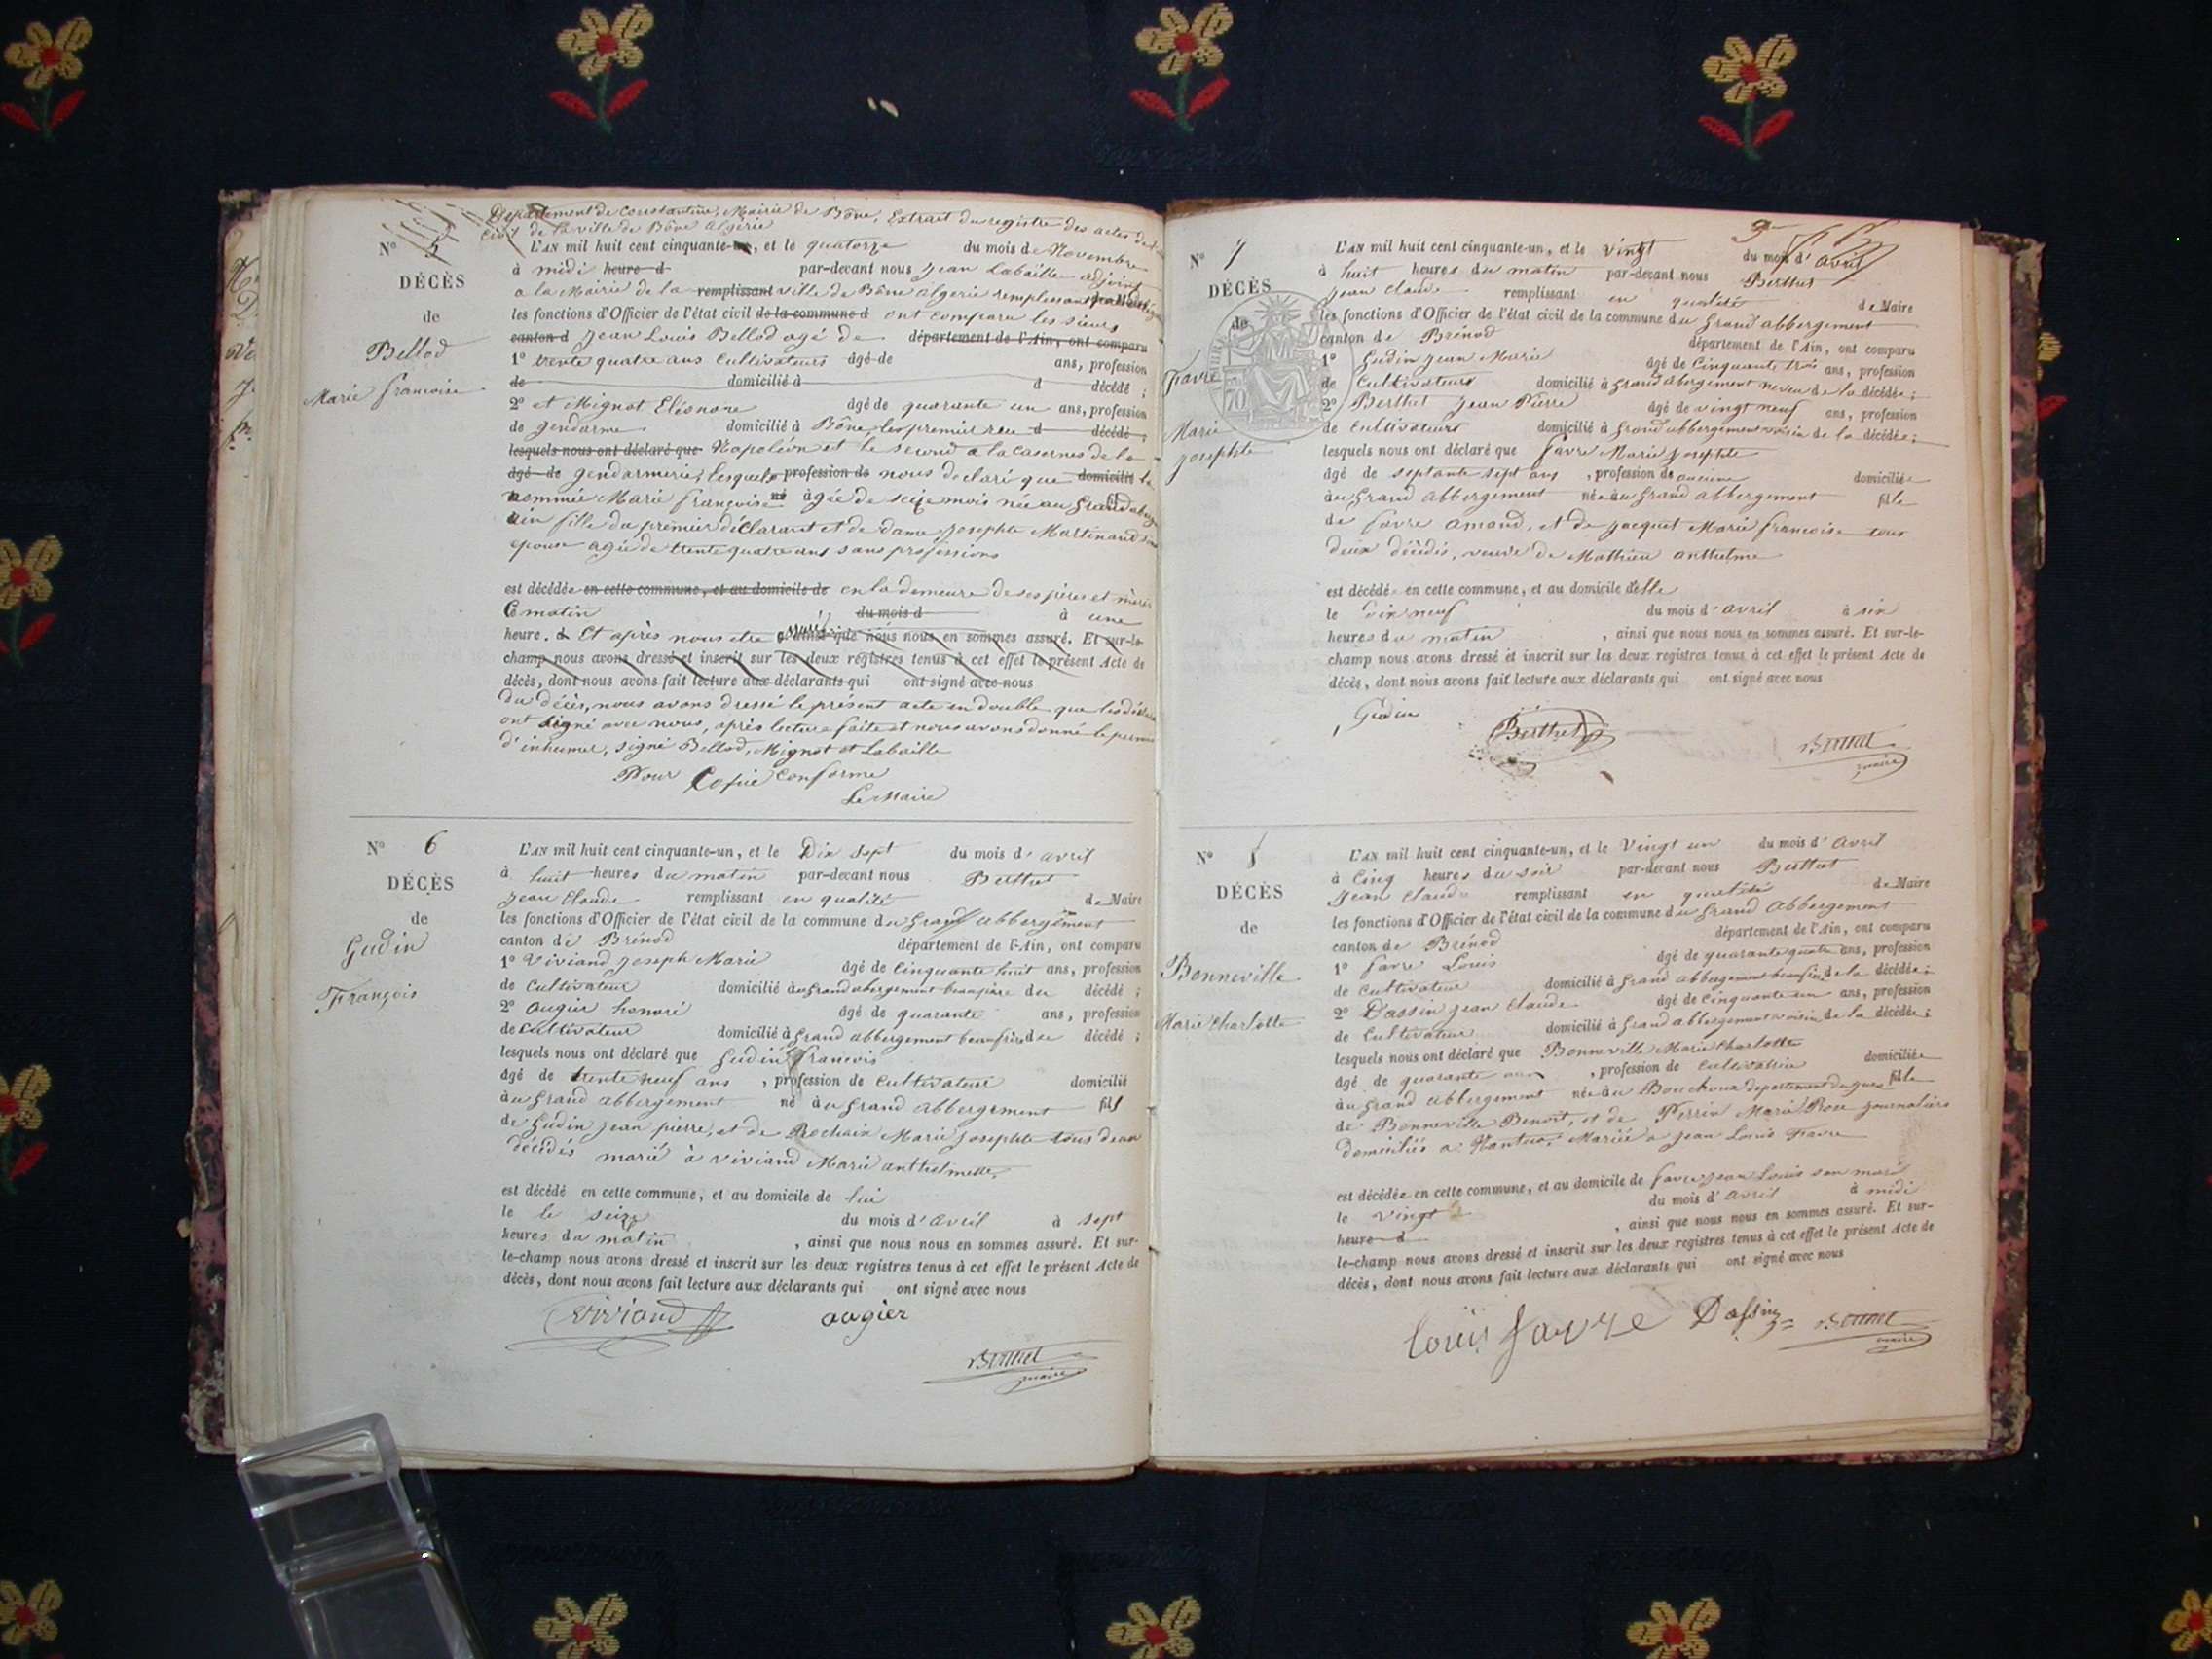 Département de Constantine, Mairie de Bône, Extrait du registre des actes de
civil de la ville de Bône Algérie
N° 5
DÉCÈS
de
Bellod
Marie françoise
L'AN mil huit cent cinquante- , et le quatorze du mois de Novembre
à midi heure d par-devant nous Jean Labaille adjoint
a la Mairie de la remplissant ville de Bône algerie remplissant
les fonctions d'Officier de l'état civil de la commune d ont comparu les sieurs
canton d Jean Louis Bellod agé de département de l'Ain, ont comparu
1° trente quatre ans Cultivateurs âgé de ans, profession
de domicilié à d décédé ;
2° et Mignot Eléonore âgé de quarante un ans, profession
de gendarme domicilié à Bône, les premier rue d décédé ;
lesquels nous ont déclaré que Napoléon et le second a la Casernes de la
âgé de gendarmerie, lesquels profession de nous declaré que domicilié la
nommée Marie françoise né âgée de seize mois née au Grand aberg
ain fille du premier déclarant et de dame Josephte Martinand son
epouse agée de trente quatre ans sans professions
est décédée en cette commune, et au domicile de en la demeure de ses pères et mères
Ce matin du mois d à une
heure. d Et après nous etre ainsi que nous nous en sommes assuré. Et sur-le-
champ nous avons dressé et inscrit sur les deux registres tenus à cet effet le présent Acte de
décès, dont nous avons fait lecture aux déclarants qui ont signé avec nous
du décès, nous avons dressé le présent acte en double que les
ont signé avec nous, après lecture faite et nous avons donné le permis
d'inhumer, signé Bellod, Mignot et Labaille
Pour Copie Conforme
Le Maire
N° 6
DÉCÈS
de
Gudin
François
L'AN mil huit cent cinquante-un, et le Dix Sept du mois d' avril
à huit heures du matin par-devant nous Berthet
Jean Claude remplissant en qualité de Maire
les fonctions d'Officier de l'état civil de la commune du Grand abbergement
canton de Brénod département de l'Ain, ont comparu
1° Viviand Joseph Marie âgé de Cinquante huit ans, profession
de Cultivateur domicilié au Grand abergement beaupère du décédé ;
2° augier honoré âgé de quarante ans, profession
de Cultivateur domicilié à Grand abbergement beaufrère du décédé ;
lesquels nous ont déclaré que Gudin François
âgé de trente neuf ans , profession de Cultivateur domicilié
à au Grand abbergement né à au Grand abbergement fils
de Gudin Jean pierre, et de Rochaix Marie Josephte tous deux
décédés marié à Viviand Marie anthelmette
est décédé en cette commune, et au domicile de lui
le le seize du mois d' avril à sept
heures du matin , ainsi que nous nous en sommes assuré. Et sur-
le-champ nous avons dressé et inscrit sur les deux registres tenus à cet effet le présent Acte de
décès, dont nous avons fait lecture aux déclarants qui ont signé avec nous
Viviand augier
Berthet
maire
3
N° 7
DÉCÈS
de
Favre
Marie
Josephte
70
L'AN mil huit cent cinquante-un, et le vingt du mois d' avril
à huit heures du matin par-devant nous Berthet
Jean Claude remplissant en qualité de Maire
les fonctions d'Officier de l'état civil de la commune du Grand abbergement
canton de Brénod département de l'Ain, ont comparu
1° Gudin Jean Marie âgé de Cinquante trois ans, profession
de Cultivateurs domicilié à Grand abergement neveu de la décédée ;
2° Berthet Jean Pierre âgé de vingt neuf ans, profession
de Cultivateurs domicilié à Grand abbergement voisin de la décédée ;
lesquels nous ont déclaré que Favre Marie Josephte
âgé de septante sept ans , profession de aucune domiciliée
à au Grand abbergement née à au Grand abbergement fille
de favre amand, et de Jacquet Marie françoise tous
deux décédés, veuve de Mathieu anthelme
est décédée en cette commune, et au domicile d'elle
le Dix neuf du mois d' avril à six
heures du matin , ainsi que nous nous en sommes assuré. Et sur-le-
champ nous avons dressé et inscrit sur les deux registres tenus à cet effet le présent Acte de
décès, dont nous avons fait lecture aux déclarants qui ont signé avec nous
Gudin Berthet
Berthet
maire
N° 8
DÉCÈS
de
Bonneville
Marie Charlotte
L'AN mil huit cent cinquante-un, et le Vingt un du mois d' avril
à Cinq heures du soir par-devant nous Berthet
Jean Claude remplissant en qualité de Maire
les fonctions d'Officier de l'état civil de la commune du Grand Abbergement
canton de Brénod département de l'Ain, ont comparu
1° favre Louis âgé de quarante quatre ans, profession
de Cultivateur domicilié à Grand abbergement beaufrère de la décédée ;
2° Dassin Jean Claude âgé de Cinquante un ans, profession
de Cultivateur domicilié à Grand abbergement voisin de la décédée ;
lesquels nous ont déclaré que Bonneville Marie Charlotte
âgé de quarante ans , profession de Cultivatrice domiciliée
à au Grand abbergement née à au Bouchoux departement du jura fille
de Bonneville Benoit, et de Perrin Marie Rose journaliers
domiciliés a Nantua, Mariée a Jean Louis Favre
est décédée en cette commune, et au domicile de favre Jean Louis son mari
le vingt du mois d' avril à midi
heure d , ainsi que nous nous en sommes assuré. Et sur-
le-champ nous avons dressé et inscrit sur les deux registres tenus à cet effet le présent Acte de
décès, dont nous avons fait lecture aux déclarants qui ont signé avec nous
Louis favre Dassin Berthet
maire